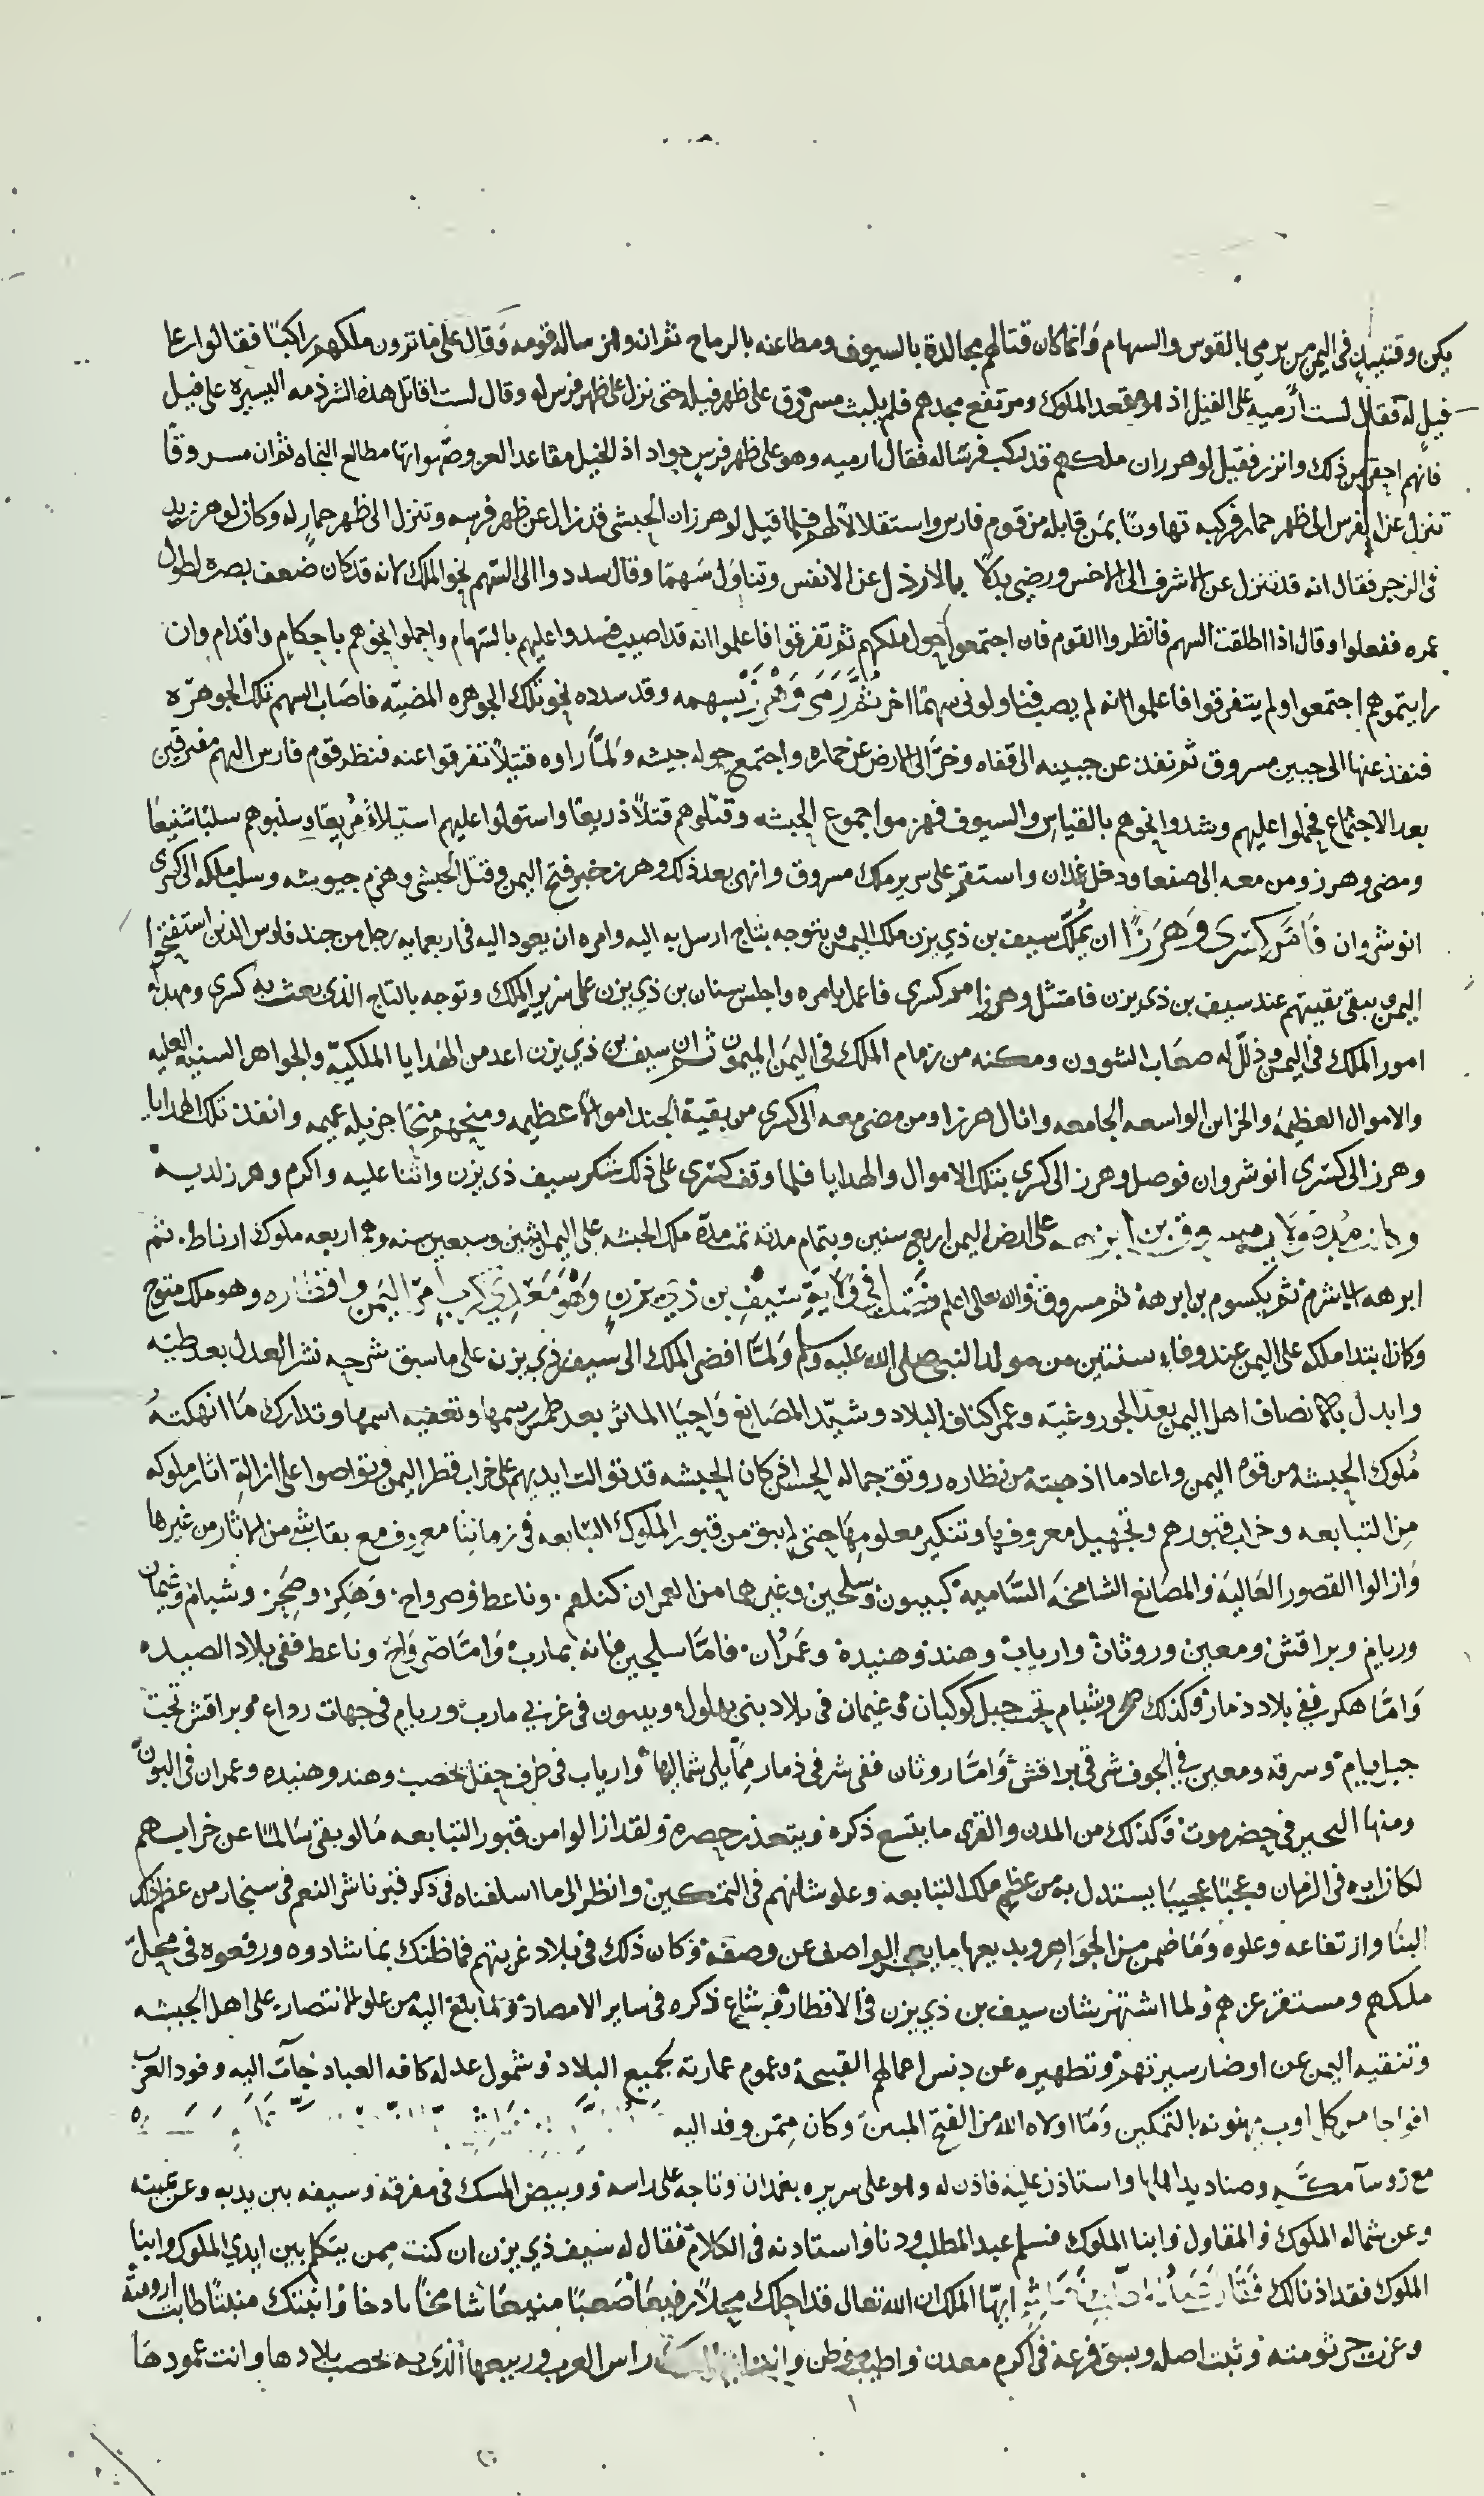 يكن وقتئذ في اليمن من يرمي بالقوس والسهام وانما كان قتالهم مجالدة بالسيوف ومطاعنه بالرماح ثم ان وهرز سال قومه وقال على ما ترون ملكهم راكبا فقالوا على
فيل له فقال لست أرميه على الفيل اذ هو مقعد الملوك ومرتفع مجدهم فلم يلبث مسروق على ظهر فيله حتى نزل على ظهر فرس له وقال لست اقاتل هذه الشرذمه اليسيره على فيل
فانهم احقر من ذلك وانزر فقيل لوهرز ان ملكهم قد ركب فرسا له فقال لا ارميه وهو على ظهر فرس جواد اذ الخيل مقاعد العز وصهواتها مطالع النجاه ثم ان مسروقا
تنزل عن الفرس الى ظهر حمار فركبه تهاونا بمن قابله من قوم فارس واستقلالا لهم فلما قيل لوهرز ان الحبشي قد نزل عن ظهر فرسه وتنزل الى ظهر حمار له وكان لوهرز يد
في الزجر فقال انه قد تنزل عن الاشرف الى الاخس ورضي بدلا بالارذل عن الانفس وتناول سهما وقال سددوا الى السهم نحو الملك لانه قد كان ضعف بصره لطول
عمره ففعلوا وقال اذا اطلقت السهم فانظروا القوم فان اجتمعوا حول ملكهم ثم تفرقوا فاعلموا انه قد اصيب فشدوا عليهم بالسهام واحملوا نحوهم باحكام واقدام وان
رايتموهم اجتمعوا ولم يتفرقوا فاعلموا انه لم يصب فناولوني سهما اخر ثم رمى وهرز بسهمه وقد سدده نحو تلك الجوهره المضيه فاصاب السهم تلك الجوهره
فنفذ عنها الى جبين مسروق ثم نفذ عن جبينه الى قفاه وخر الى الارض عن حماره واجتمع حوله جيشه ولما راوه قتيلا تفرقوا عنه فنظر قوم فارس اليهم مفترقين
بعد الاجتماع فحملوا عليهم وشدوا نحوهم بالقياس والسيوف فهزموا جموع الحبشه وقتلوهم قتلا ذريعا واستولوا عليهم استيلاء مريعا وسلبوهم سلبا شنيعا
ومضى وهرز ومن معه الى صنعا ودخل غمدان واستقر على سرير ملك مسروق وانهى بعد ذلك وهرز خبر فتح اليمن وقتل الحبشي وهزم جيوشه وسلب ملكه الى كسرى
انوشروان فامر كسرى وهرزا ان يملك سيف بن ذي يزن ملك اليمن وبتوجه بتاج ارسل به اليه وامره ان يعود اليه في اربعمايه رجل من جند فارس الذين استفتحوا
اليمن ويبقى بقيتهم عند سيف بن ذي يزن فامتثل وهرز امر كسرى فاعمل بامره واجلس سنان بن ذي يزن على سرير الملك وتوجه بالتاج الذي بعث به كسرى ومهد له
امور الملك في اليمن وذلل له صعاب الشوون ومكنه من زمام الملك في اليمن الميمون ثم ان سيف بن ذي يزن اعد من الهدايا الملكيه والجواهر السنيه العليه
والاموال العظيمه والخزاين الواسعه الجامعه وانال هرزا ومن مضى معه الى كسرى من بقية الجند اموالا عظيمه ومنحهم منحا جزيله عميمه وانفذ تلك الهدايا
وهرز الى كسرى انوشروان فوصل وهرز الى كسرى بتلك الاموال والهدايا فلما وقف كسرى على ذلك شكر سيف ذي يزن واثنا عليه واكرم وهرز لديه
وكانت مدة ولاية مسروق بن ابرهه على ارض اليمن اربع سنين وبتمام مدته تمت مدة ملك الحبشه على اليمن اثنين وسبعين سنه وهم اربعه ملوك ارناط ثم
ابرهه الاشرم ثم يكسوم بن ابرهة ثم مسروق والله تعالى اعلم فصل في ولاية سيف بن ذي يزن وهو معدي كرب امر اليمن وافتخاره وهو ملك متوج
وكان ابتدا ملكه على اليمن عند وفاء سنتين من مولد النبي صلى الله عليه وسلم ولما افضى الملك الى سيف ذي يزن على ما سبق شرحه نشر العدل بعد طيه
وابدل بالانصاف اهل اليمن بعد الجور وغيه وعمر اكناف البلاد وشيد المصانع واحيا الماثر بعد طمس رسمها وتعفيه اسمها وتدارك ما انهكته
ملوك الحبشه من قوة اليمن واعاد ما اذهبته من نظاره رونق جماله الحسن فان الحبشه قد توالت ايديهم على خراب قطر اليمن وتواصوا على ازالة اثار ملوكه
من التبابعه وخراب قبورهم وتجهيل معروفها وتنكير معلومها حتى لم يبق من قبور الملوك التبابعه في زماننا معروف مع بقا شي من الاثار من غيرها
وازالوا القصور العاليه والمصانع الشامخه الساميه كبينون وسلحين وغيرهما من العمران كتلفم وناعط وصرواح وهكر وضهر وشبام وغيمان
وريام وبراقش ومعين وروثان وارياب وهند وهنيدة وعمران فاما سلحين فانه بمارب واما صرواح وناعط ففي بلاد الصيد
واما هكر ففي بلاد ذمار وكذلك ضهر وشبام تحت جبل كوكبان وغيمان في بلاد بني بهلول وبينون في غربي مارب وريام في جهات رداع وبراقش تحت
جبل يام وسرقه ومعين في الجوف شرقي براقش واما روثان ففي شرفي ذمار مما يلي شمالها وارياب في طرف حقل يحصب وهند وهنيده وعمران في البون
ومنها النجير في حضرموت وكذلك من المدن والقرى ما يتسع ذكره ويتعذر حصره ولقد ازالوا من قبور التبابعه ما لو بقي سالما عن خرابهم
لكان ايه في الزمان وعجبا عجيبا يستدل به من عظم ملك التبابعه وعلو شانهم في التمكين وانظر الى ما اسلفناه في ذكر قبر ناشر النعم في سنجار من عظم ذلك
البنا وارتفاعه وعلوه وما ضمن من الجواهر وبديعها ما يعجز الواصف عن وصفه وكان ذلك في بلاد غربتهم فما ظنك بما شادوه ورفعوه في محل
ملكهم ومستقر عزهم ولما اشتهر شان سيف بن ذي يزن في الاقطار وشاع ذكره في ساير الامصار ولما بلغ اليه من علو الانتصار على اهل الحبشه
وتنقيه اليمن عن اوضار سيرتهم وتطهيره عن دنس اعمالهم القبيحه وعموم عمارته لجميع البلاد وشمول عدله كافه العباد جآت اليه وفود العرب
افواجا من كل اوب يهنونه بالتمكين وما اولاه الله من الفتح المبين وكان ممن وفد اليه
مع روسا مكه وصناديدها واستاذن عليه فاذن له وهو على سريره بغمدان وتاجه على راسه ووبيض المسك في مفرقه وسيفه بين يديه وعن يمينه
وعن شماله الملوك والمقاول وابنا الملوك فسلم عبد المطلب ودنا واستاذنه في الكلام فقال له سيف ذي يزن ان كنت ممن يتكلم بين ايدي الملوك وابنا
الملوك فقد اذنا لك فقال ايها الملك ان الله تعالى قد احلك محلا رفيعا صعبا منيعا شامخا باذخا وانبتك منبتا طابت ارومته
وعزت جرثومته وثبت اصله وبسق فرعه في اكرم معدن واطيب موطن وانت راس العرب وربيعها الذي به تخصب بلادها وانت عمودها